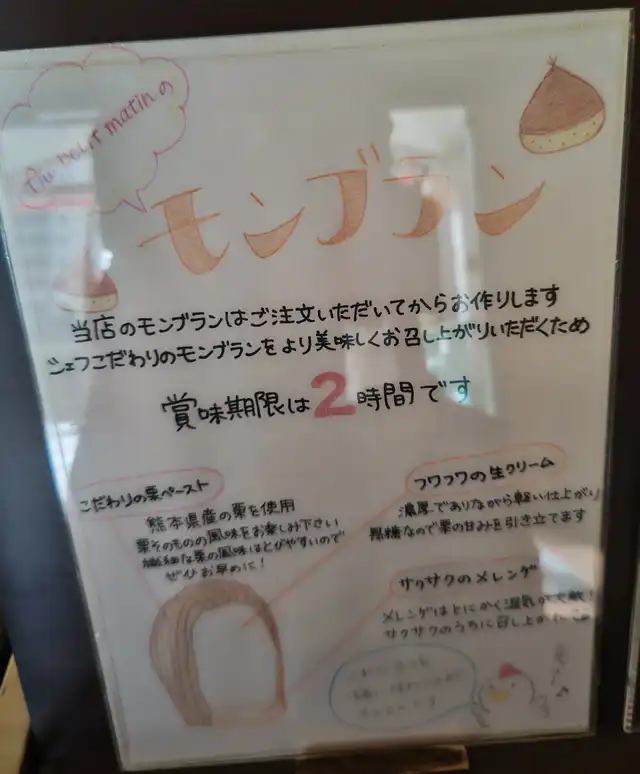 Du petit matinの
モンブラン
当店のモンブランはご注文いただいてからお作りします
シェフこだわりのモンブランをより美味しくお召し上がりいただくため
賞味期限は2時間です
こだわりの栗ペースト
熊本県産の栗を使用
栗そのものの風味をお楽しみ下さい
繊細な栗の風味はとびやすいので
ぜひお早めに!
フワフワの生クリーム
濃厚でありながら軽い仕上がり
無糖なので栗の甘みを引き立てます
サクサクのメレンゲ
メレンゲはとにかく湿気が大敵!
サクサクのうちに召し上がれ